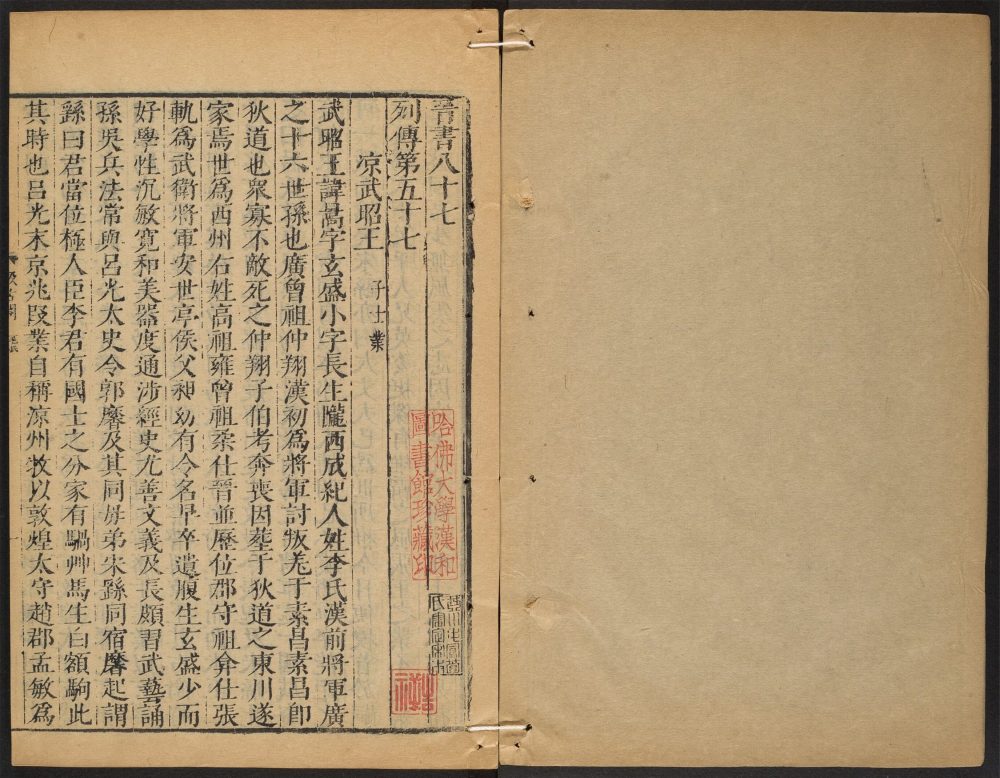 晉書八十七
列傳第五十七
涼武昭王 子士業
武昭王諱暠字玄盛小字長生隴西成紀人姓李氏漢前將軍廣
之十六世孫也廣曾祖仲翔漢初爲將軍討叛羌于素昌素昌卽
狄道也衆寡不敵死之仲翔子伯考奔喪因葬于狄道之東川遂
家焉世爲西州右姓高祖雍曾祖柔仕晉並歷位郡守祖弇仕張
軌爲武衞將軍安世亭侯父昶幼有令名早卒遺腹生玄盛少而
好學性沉敏寬和美器度通涉經史尤善文義及長頗習武藝誦
孫吳兵法常與呂光太史令郭黁及其同母弟宋繇同宿黁起謂
繇曰君當位極人臣李君有國士之分家有騧艸馬生白額駒此
其時也呂光末京兆段業自稱涼州牧以敦煌太守趙郡孟敏爲
哈佛大學漢和
圖書館珍藏印